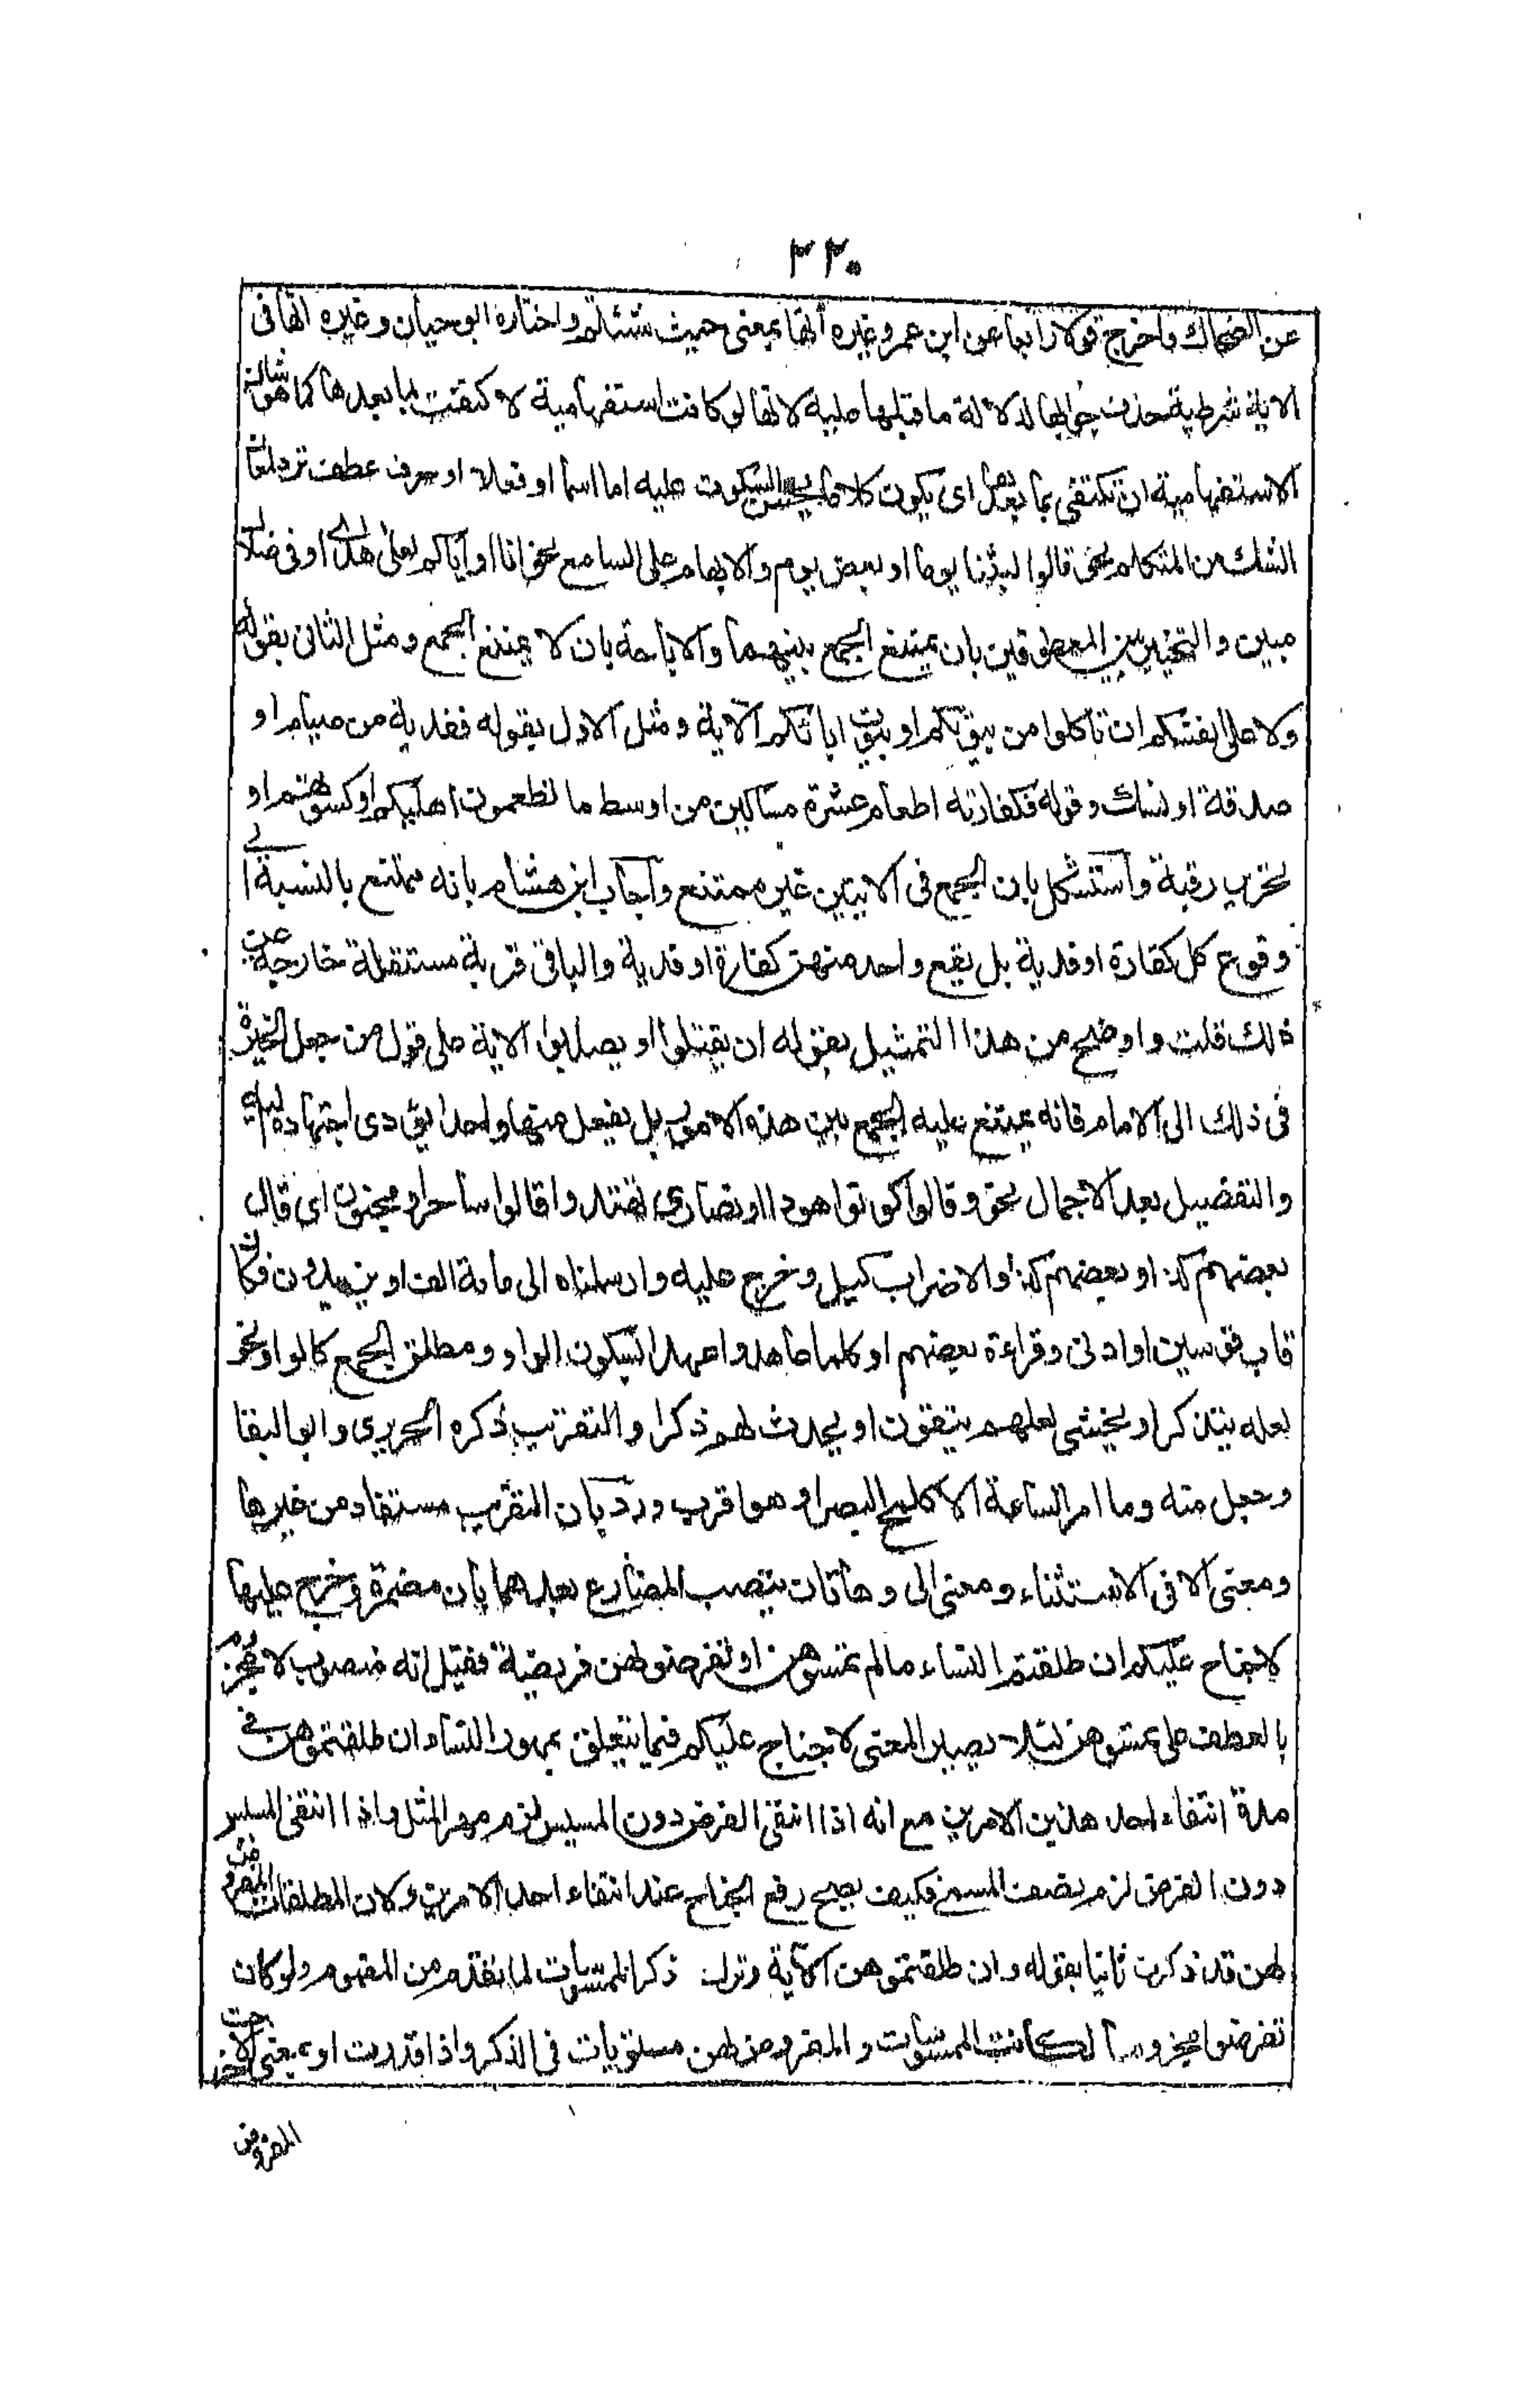 ٣٢٠
عن الضحاك واخرج قولا رابعا عن ابن عمر وغيره انها بمعنى حيث شئتم واختاره ابو حيان وغيره انها فى
الاية شرطية حذف جوابها لدلالة ما قبلها عليه لانها لو كانت استفهامية لاكتفت بما بعدها كما هو شان
الاستفهامية ان تكتفى بما بعدها اى يكون كلاما يحسن السكوت عليه اما اسما او فعلا او حرف عطف ترد لمعان
الشك من المتكلم نحو قالوا لبثنا يوما او بعض يوم والابهام على السامع نحو انا او اياكم لعلى هدى او فى ضلال
مبين والتخيير بين المعطوفين بان يمتنع الجمع بينهما والاباحة بان لا يمتنع الجمع ومثل الثانى بقوله
ولا على انفسكم ان تاكلوا من بيوتكم او بيوت ابائكم الآية ومثل الاول بقوله ففدية من صيام او
صدقة او نسك وقوله فكفارته اطعام عشرة مساكين من اوسط ما تطعمون اهليكم او كسوتهم او
تحرير رقبة واستشكل بان الجمع فى الايتين غير ممتنع وآجاب ابن هشام بانه ممتنع بالنسبة الى
وقوع كل كفارة او فدية بل يقع واحد منهن كفارة او فدية والباقى قربة مستقلة خارجة عن
ذلك قلت واوضح من هذا التمثيل بقوله ان يقتلوا او يصلبوا الاية على قول من جعل الخيرة
فى ذلك الى الامام فانه يمتنع عليه الجمع بين هذه الامور بل يفعل منها واحدا يؤدى اجتهاده اليه
والتفصيل بعد الاجمال نحو وقالوا كونوا هودا او نصارى تهتدوا قالوا ساحر او مجنون اى قال
بعضهم كذا وبعضهم كذا والاضراب كبل وخرج عليه وارسلناه الى مائة الف او يزيدون فكان
قاب قوسين او ادنى وقراءة بعضهم او كلما عاهدوا عهدا بسكون الواو ومطلق الجمع كالواو نحو
لعله يتذكر او يخشى لعلهم يتقون او يحدث لهم ذكرا والتقريب ذكره الحريرى وابو البقا
وجعل منه وما امر الساعة الا كلمح البصر او هو اقرب ورد بان التقريب مستفاد من غيرها
ومعنى الا فى الاستثناء ومعنى الى وهاتان ينصب المضارع بعدهما بان مضمرة وخرج عليها
لا جناح عليكم ان طلقتم النساء ما لم تمسوهن او تفرضوا لهن فريضة فقيل انه منصوب لا مجزوم
بالعطف على تمسوهن لئلا يصير المعنى لا جناح عليكم فيما يتعلق بمهور النساء ان طلقتموهن فى
مدة انتفاء احد هذين الامرين مع انه اذا انتفى الفرض دون المسيس لزم مهر المثل واذا انتفى المسيس
دون الفرض لزم نصف المسمى فكيف يصح رفع الجناح عند انتفاء احد الامرين ولان المطلقات المفروض
لهن قد ذكرت ثانيا بقوله وان طلقتموهن الآية وترك ذكر الممسوسات لما تقدم من المفهوم ولو كان
تفرضوا مجزوما لكانت الممسوسات والمفروض لهن مستويات فى الذكر واذا قدرت او بمعنى الا خرجت
المفروض